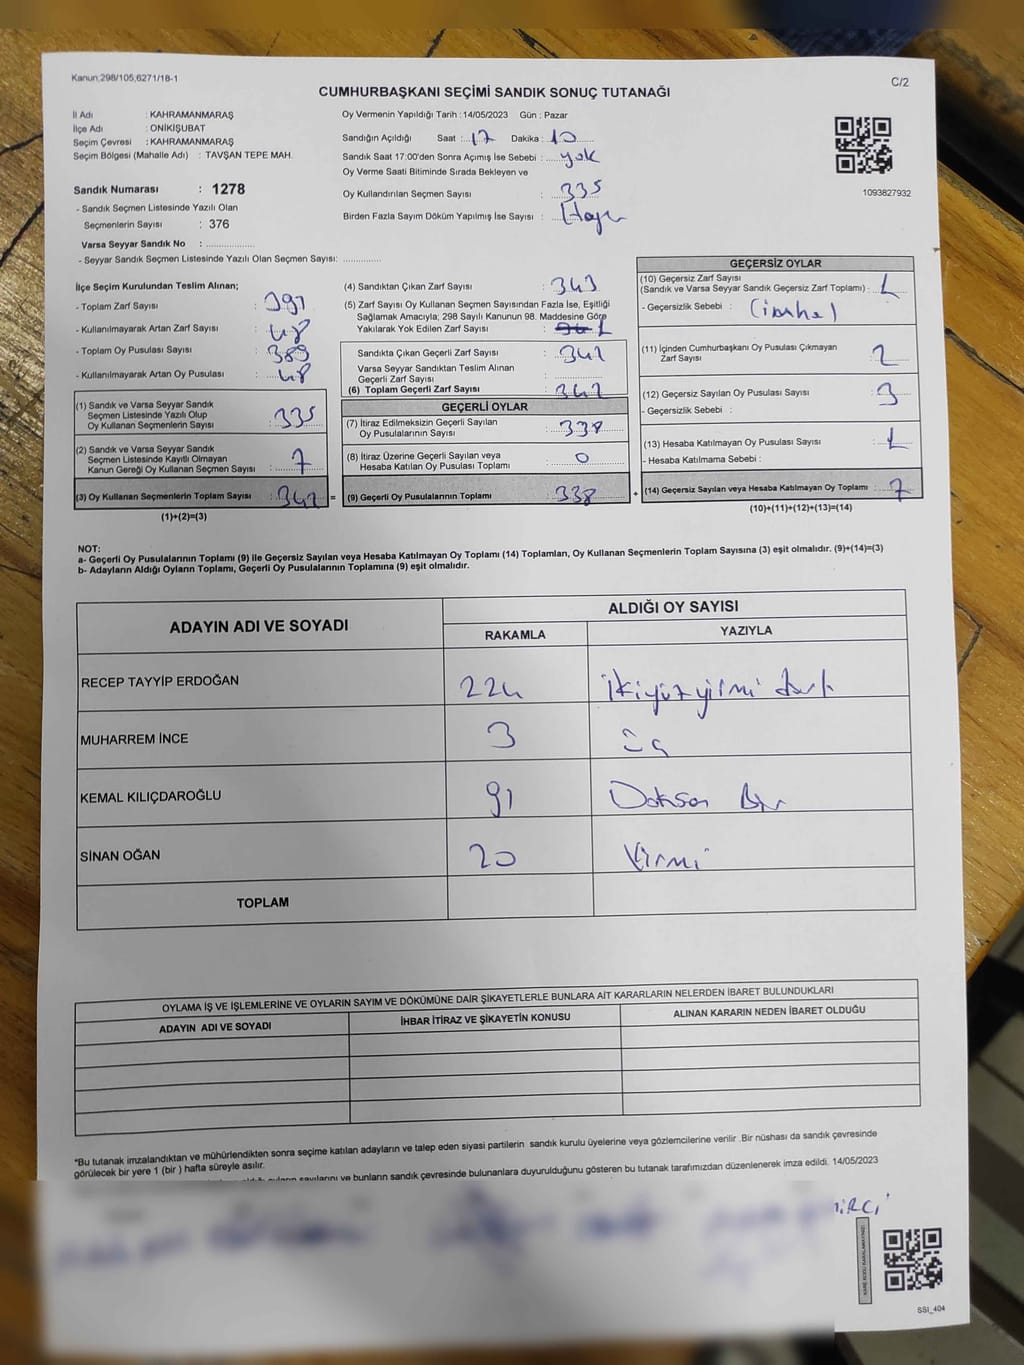 Kanun;298/105,6271/18-1
C/2
CUMHURBAŞKANI SEÇİMİ SANDIK SONUÇ TUTANAĞI
İl Adı : KAHRAMANMARAŞ
İlçe Adı : ONİKİŞUBAT
Seçim Çevresi : KAHRAMANMARAŞ
Seçim Bölgesi (Mahalle Adı) : TAVŞAN TEPE MAH.
Sandık Numarası : 1278
- Sandık Seçmen Listesinde Yazılı Olan
Seçmenlerin Sayısı : 376
Varsa Seyyar Sandık No : ..................
- Seyyar Sandık Seçmen Listesinde Yazılı Olan Seçmen Sayısı: ..............
Oy Vermenin Yapıldığı Tarih : 14/05/2023 Gün : Pazar
Sandığın Açıldığı Saat : 17 Dakika : 10
Sandık Saat 17:00'den Sonra Açımış İse Sebebi : yok
Oy Verme Saati Bitiminde Sırada Bekleyen ve
Oy Kullandırılan Seçmen Sayısı : 335
Birden Fazla Sayım Döküm Yapılmış İse Sayısı : Hayır
1093827932
İlçe Seçim Kurulundan Teslim Alınan;
- Toplam Zarf Sayısı : 391
- Kullanılmayarak Artan Zarf Sayısı : 48
- Toplam Oy Pusulası Sayısı : 389
- Kullanılmayarak Artan Oy Pusulası : 48
(1) Sandık ve Varsa Seyyar Sandık
Seçmen Listesinde Yazılı Olup
Oy Kullanan Seçmenlerin Sayısı : 335
(2) Sandık ve Varsa Seyyar Sandık
Seçmen Listesinde Kayıtlı Olmayan
Kanun Gereği Oy Kullanan Seçmen Sayısı : 7
(3) Oy Kullanan Seçmenlerin Toplam Sayısı : 342 =
(1)+(2)=(3)
(4) Sandıktan Çıkan Zarf Sayısı : 343
(5) Zarf Sayısı Oy Kullanan Seçmen Sayısından Fazla İse, Eşitliği
Sağlamak Amacıyla; 298 Sayılı Kanunun 98. Maddesine Göre
Yakılarak Yok Edilen Zarf Sayısı : 1
Sandıkta Çıkan Geçerli Zarf Sayısı : 342
Varsa Seyyar Sandıktan Teslim Alınan
Geçerli Zarf Sayısı : ..............
(6) Toplam Geçerli Zarf Sayısı : 342
GEÇERLİ OYLAR
(7) İtiraz Edilmeksizin Geçerli Sayılan
Oy Pusulalarının Sayısı : 338
(8) İtiraz Üzerine Geçerli Sayılan veya
Hesaba Katılan Oy Pusulası Toplamı : 0
(9) Geçerli Oy Pusulalarının Toplamı : 338 +
GEÇERSİZ OYLAR
(10) Geçersiz Zarf Sayısı
(Sandık ve Varsa Seyyar Sandık Geçersiz Zarf Toplamı) : 1
- Geçersizlik Sebebi : (imha)
(11) İçinden Cumhurbaşkanı Oy Pusulası Çıkmayan
Zarf Sayısı : 2
(12) Geçersiz Sayılan Oy Pusulası Sayısı : 3
- Geçersizlik Sebebi :
(13) Hesaba Katılmayan Oy Pusulası Sayısı : 1
- Hesaba Katılmama Sebebi :
(14) Geçersiz Sayılan veya Hesaba Katılmayan Oy Toplamı : 7
(10)+(11)+(12)+(13)=(14)
NOT:
a- Geçerli Oy Pusulalarının Toplamı (9) ile Geçersiz Sayılan veya Hesaba Katılmayan Oy Toplamı (14) Toplamları, Oy Kullanan Seçmenlerin Toplam Sayısına (3) eşit olmalıdır. (9)+(14)=(3)
b- Adayların Aldığı Oyların Toplamı, Geçerli Oy Pusulalarının Toplamına (9) eşit olmalıdır.
ADAYIN ADI VE SOYADI ALDIĞI OY SAYISI
RAKAMLA YAZIYLA
RECEP TAYYİP ERDOĞAN 224 ikiyüzyirmi dört
MUHARREM İNCE 3 üç
KEMAL KILIÇDAROĞLU 91 Doksan Bir
SİNAN OĞAN 20 Yirmi
TOPLAM
OYLAMA İŞ VE İŞLEMLERİNE VE OYLARIN SAYIM VE DÖKÜMÜNE DAİR ŞİKAYETLERLE BUNLARA AİT KARARLARIN NELERDEN İBARET BULUNDUKLARI
ADAYIN ADI VE SOYADI İHBAR İTİRAZ VE ŞİKAYETİN KONUSU ALINAN KARARIN NEDEN İBARET OLDUĞU
*Bu tutanak imzalandıktan ve mühürlendikten sonra seçime katılan adayların ve talep eden siyasi partilerin sandık kurulu üyelerine veya gözlemcilerine verilir .Bir nüshası da sandık çevresinde
görülecek bir yere 1 (bir ) hafta süreyle asılır.
sayılarını ve bunların sandık çevresinde bulunanlara duyurulduğunu gösteren bu tutanak tarafımızdan düzenlenerek imza edildi. 14/05/2023
SSİ_404